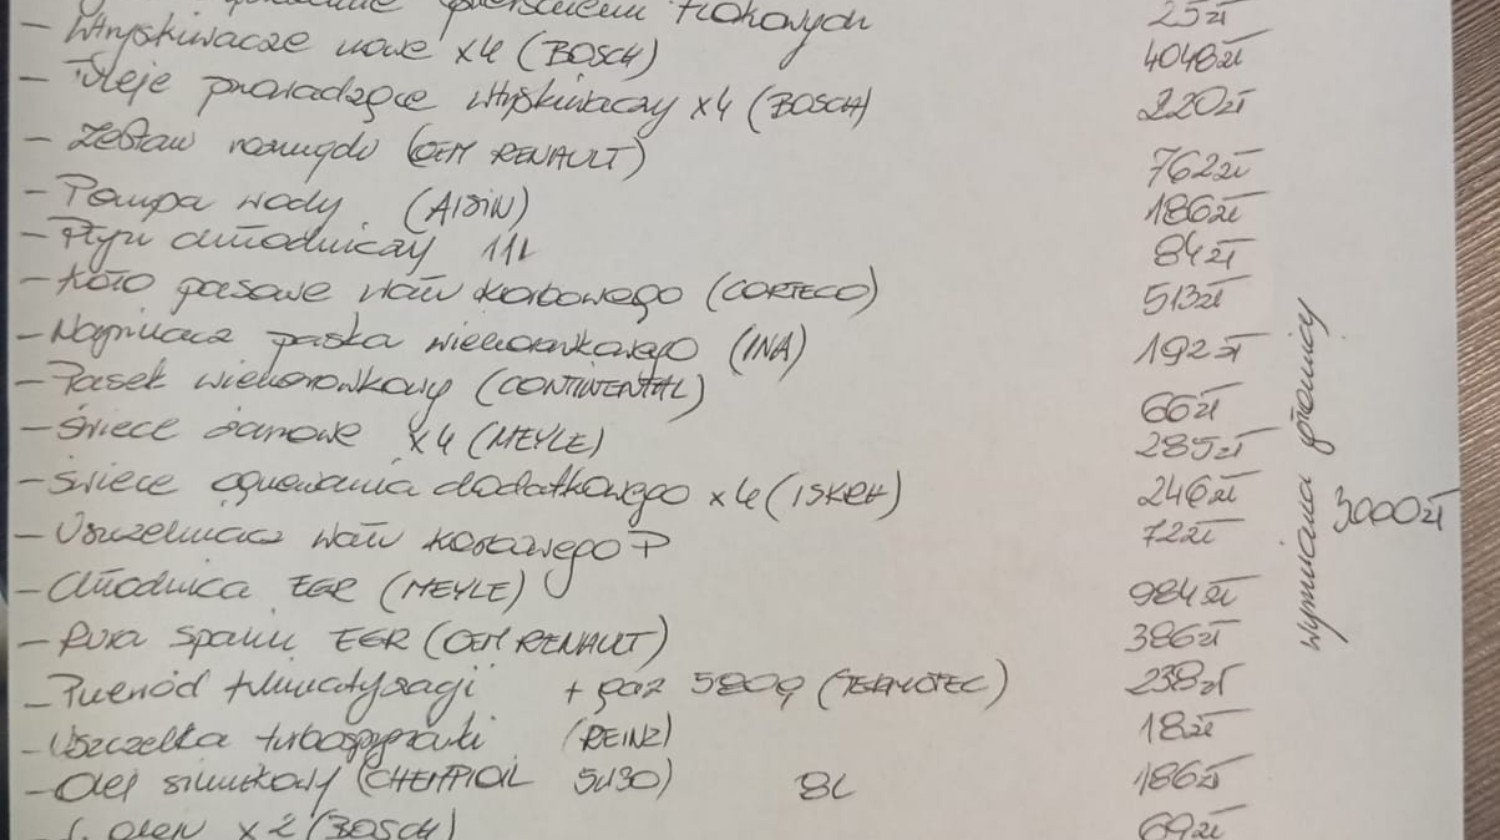 pierścieni tłokowych 25zł
- Wtryskiwacze nowe x4 (BOSCH) 4048zł
- Tuleje prowadzące wtryskiwaczy x4 (BOSCH) 220zł
- Zestaw rozrządu (OEM RENAULT) 762zł
- Pompa wody (AISIN) 186zł
- Płyn chłodniczy 11L 84zł
- Koło pasowe wału korbowego (CORTECO) 513zł
- Napinacz paska wielorowkowego (INA) 192zł
- Pasek wielorowkowy (CONTINENTAL) 66zł
- Świece żarowe x4 (MEYLE) 285zł
- Świece ogrzewania dodatkowego x4 (ISKRA) 246zł
- Uszczelniacz wału korbowego P 72zł
- Chłodnica EGR (MEYLE) 984zł
- Rura spalin EGR (OEM RENAULT) 386zł
- Przewód klimatyzacji + gaz 580g (TERMOTEC) 238zł
- Uszczelka turbosprężarki (REINZ) 18zł
- Olej silnikowy (CHEMPIOIL 5W30) 8L 186zł
- f. oleju x2 (BOSCH) 69zł
wymiana głowicy
3000zł